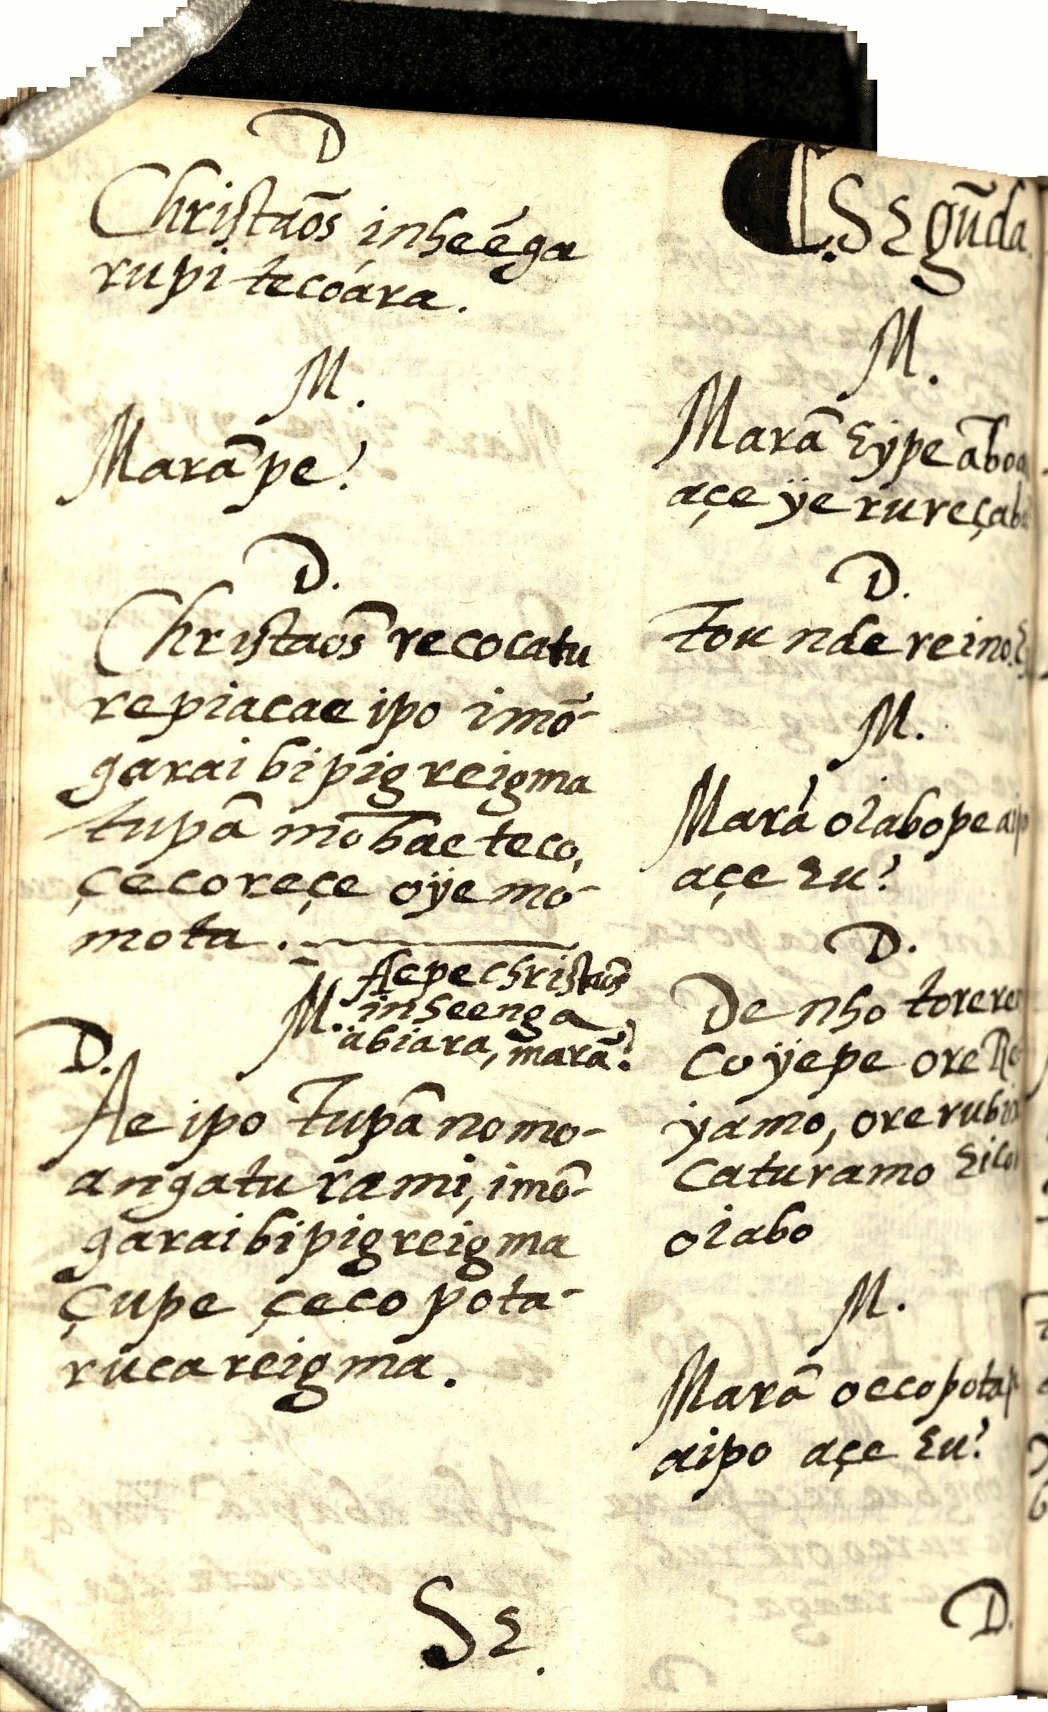 D
Christaõs inheéga
rupi tecoára.
M.
Marãpe?
D.
Christaos̃ recocatu
repiacae ipo imõ-
garaibipigreigma
tupã mobaeteco,
çecoreçe oÿemo-
mota.
M. Aepe christaõs
inheenga
abiara, marã?
D.
Ae ipo Tupã nomo-
angaturami, imõ-
garaibipigreigma
çupe çeco pota-
rucareigma.
Se.
Segũda
M.
Marã eÿpe
açe ÿe
D.
Tou nde reino
M.
Marã oiabope
açe eu?
D.
De nho
Coÿepe ore
ÿamo,
Caturamo
oiabo
M.
Marã
aipo açe eu?
D.